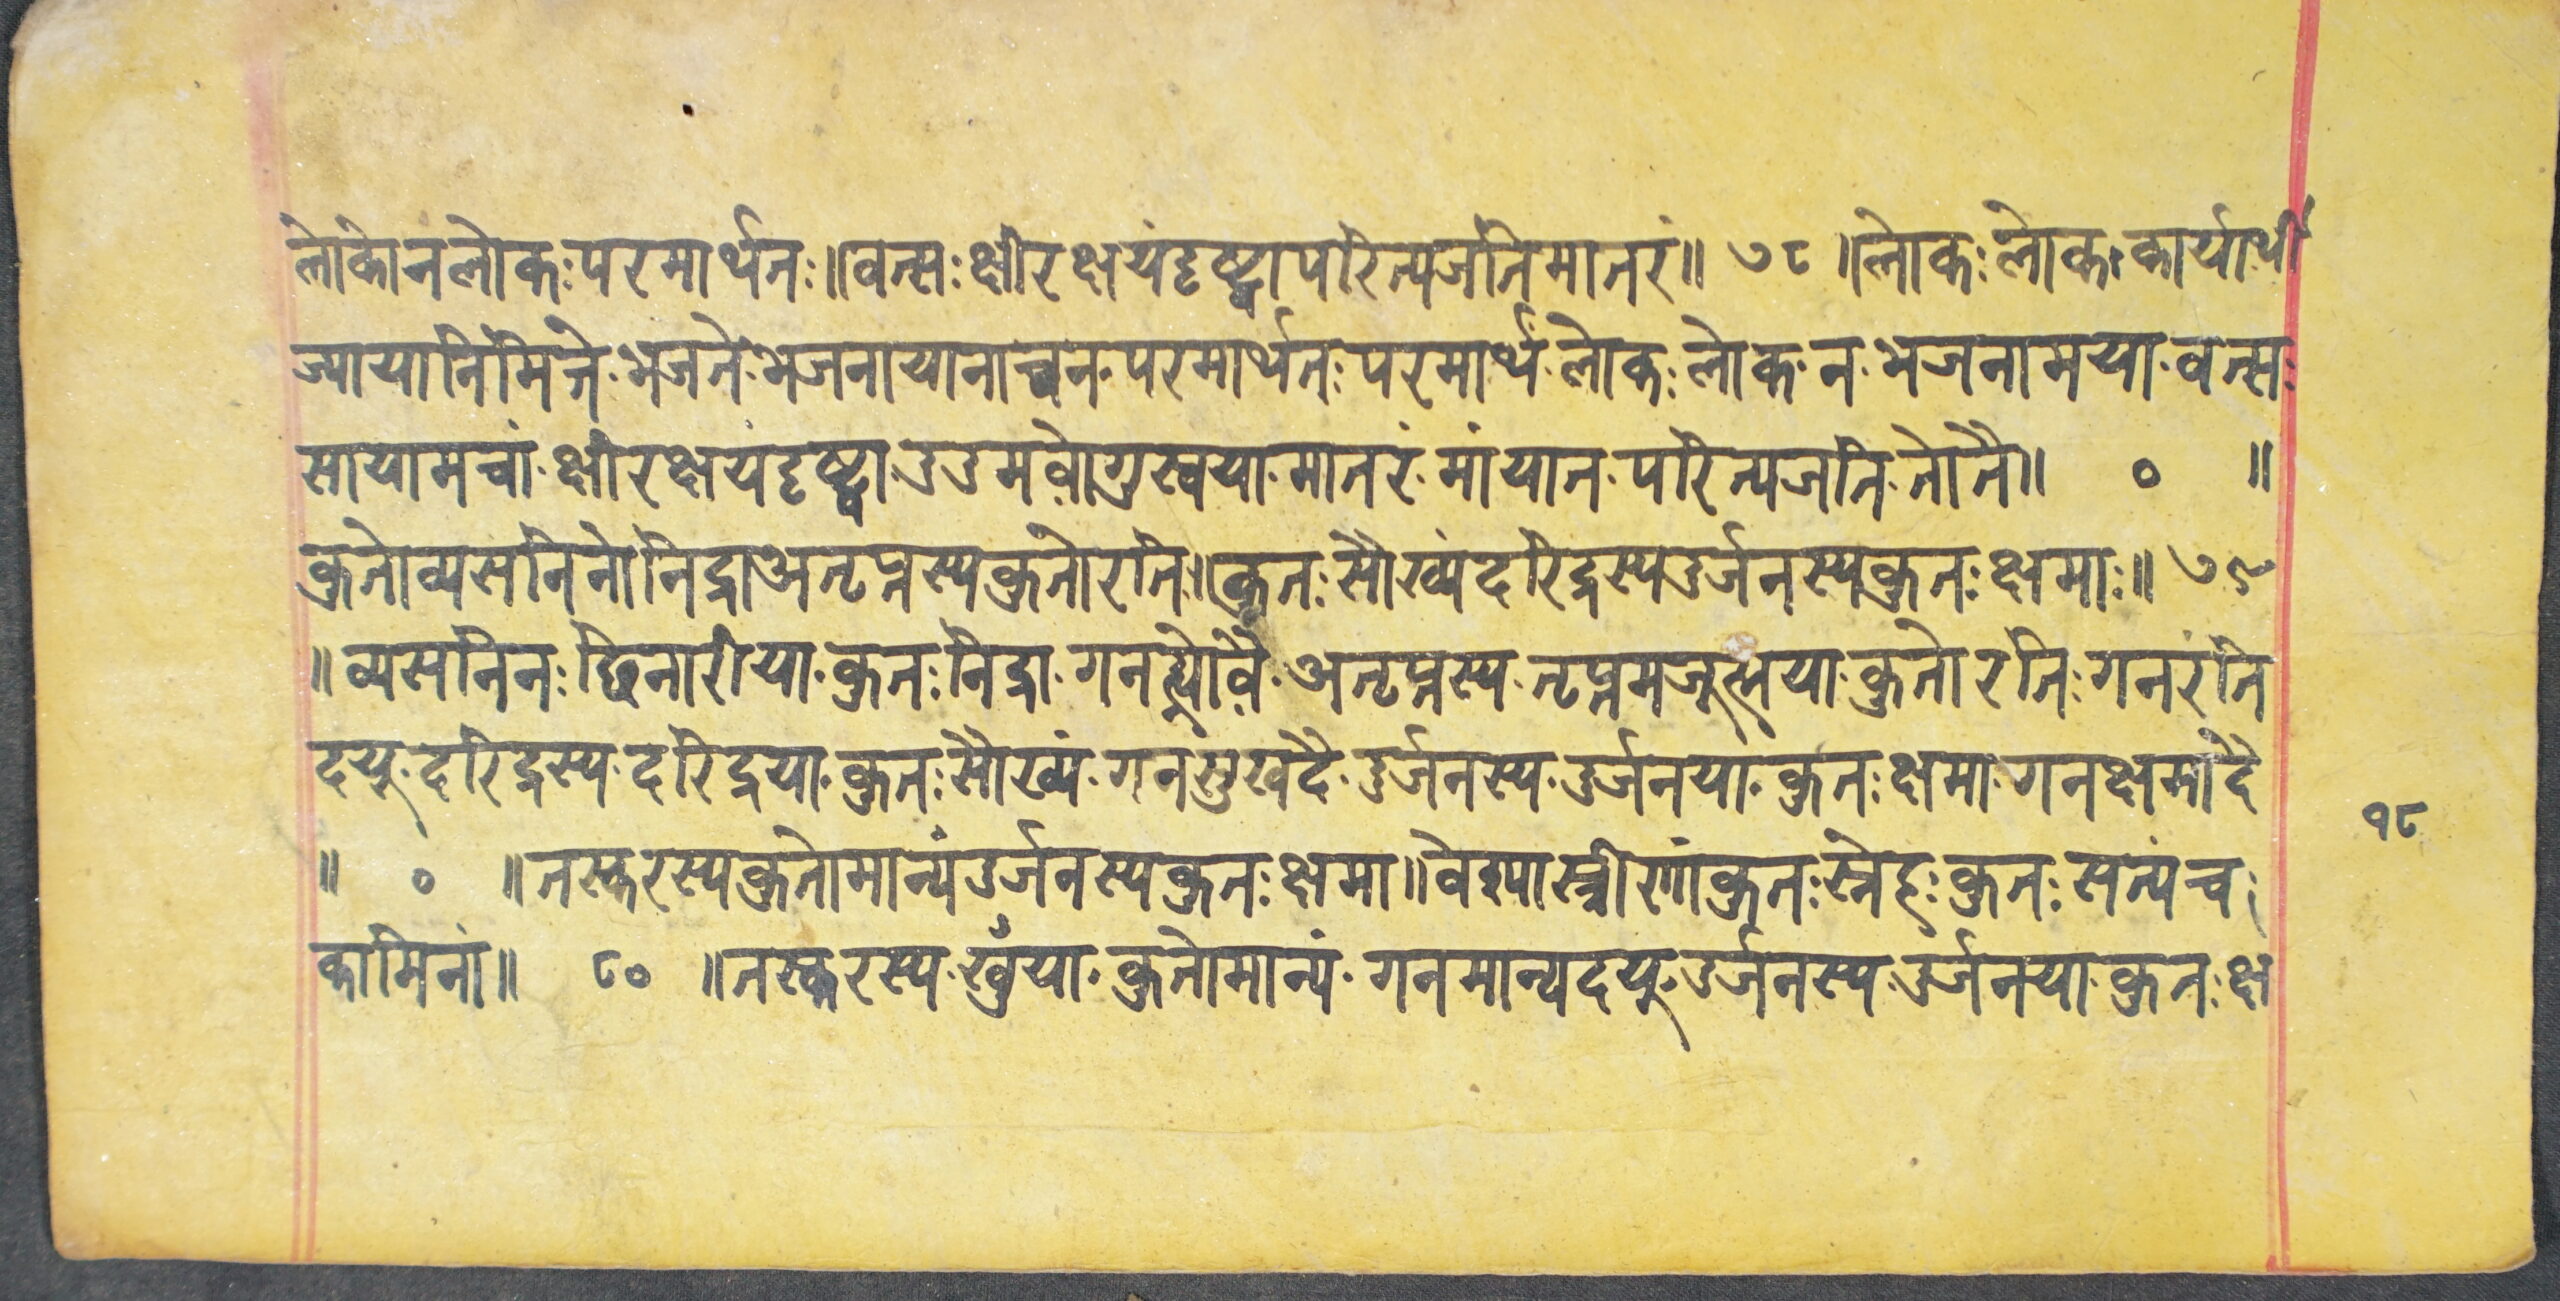 लोकोनलोकःपरमार्थतः॥वत्सःक्षीरक्षयंदृष्ट्वापरित्यजतिमातरं॥ ७८ ॥लोकःलोकःकार्यार्थी
ज्यायानिमित्तेभजतेभजनायानाच्वनपरमार्थतःपरमार्थंलोकःलोकनभजनामयावत्सः
सायामचांक्षीरक्षयंदृष्ट्वादुदुमवोगुखयामातरंमांयातपरित्यजतितोतै॥ ० ॥
कुतोव्यसनिनोनिद्राअतृप्तस्यकुतोरति॥कुतःसौख्यंदरिद्रस्यदुर्जनस्यकुतःक्षमाः॥ ७९
॥व्यसनिनःछिनारीयाकुतःनिद्रागनन्ह्योवैअतृप्तस्यतृप्तमजूत्मयाकुतोरतिगनरंति
दयूदरिद्रस्यदरिद्रयाकुतःसौख्यंगनसुखदैदुर्जनस्यदुर्जनयाकुतःक्षमागनक्षमादै
॥ ० ॥तस्करस्यकुतोमान्यंदुर्जनस्यकुतःक्षमा॥वेश्यास्त्रीणांकुतःस्नेहःकुतःसत्यंच
कामिनां॥ ८० ॥तस्करस्यखुँयाकुतोमान्यंगनमान्यदयूदुर्जनस्यदुर्जनयाकुतःक्ष
१८